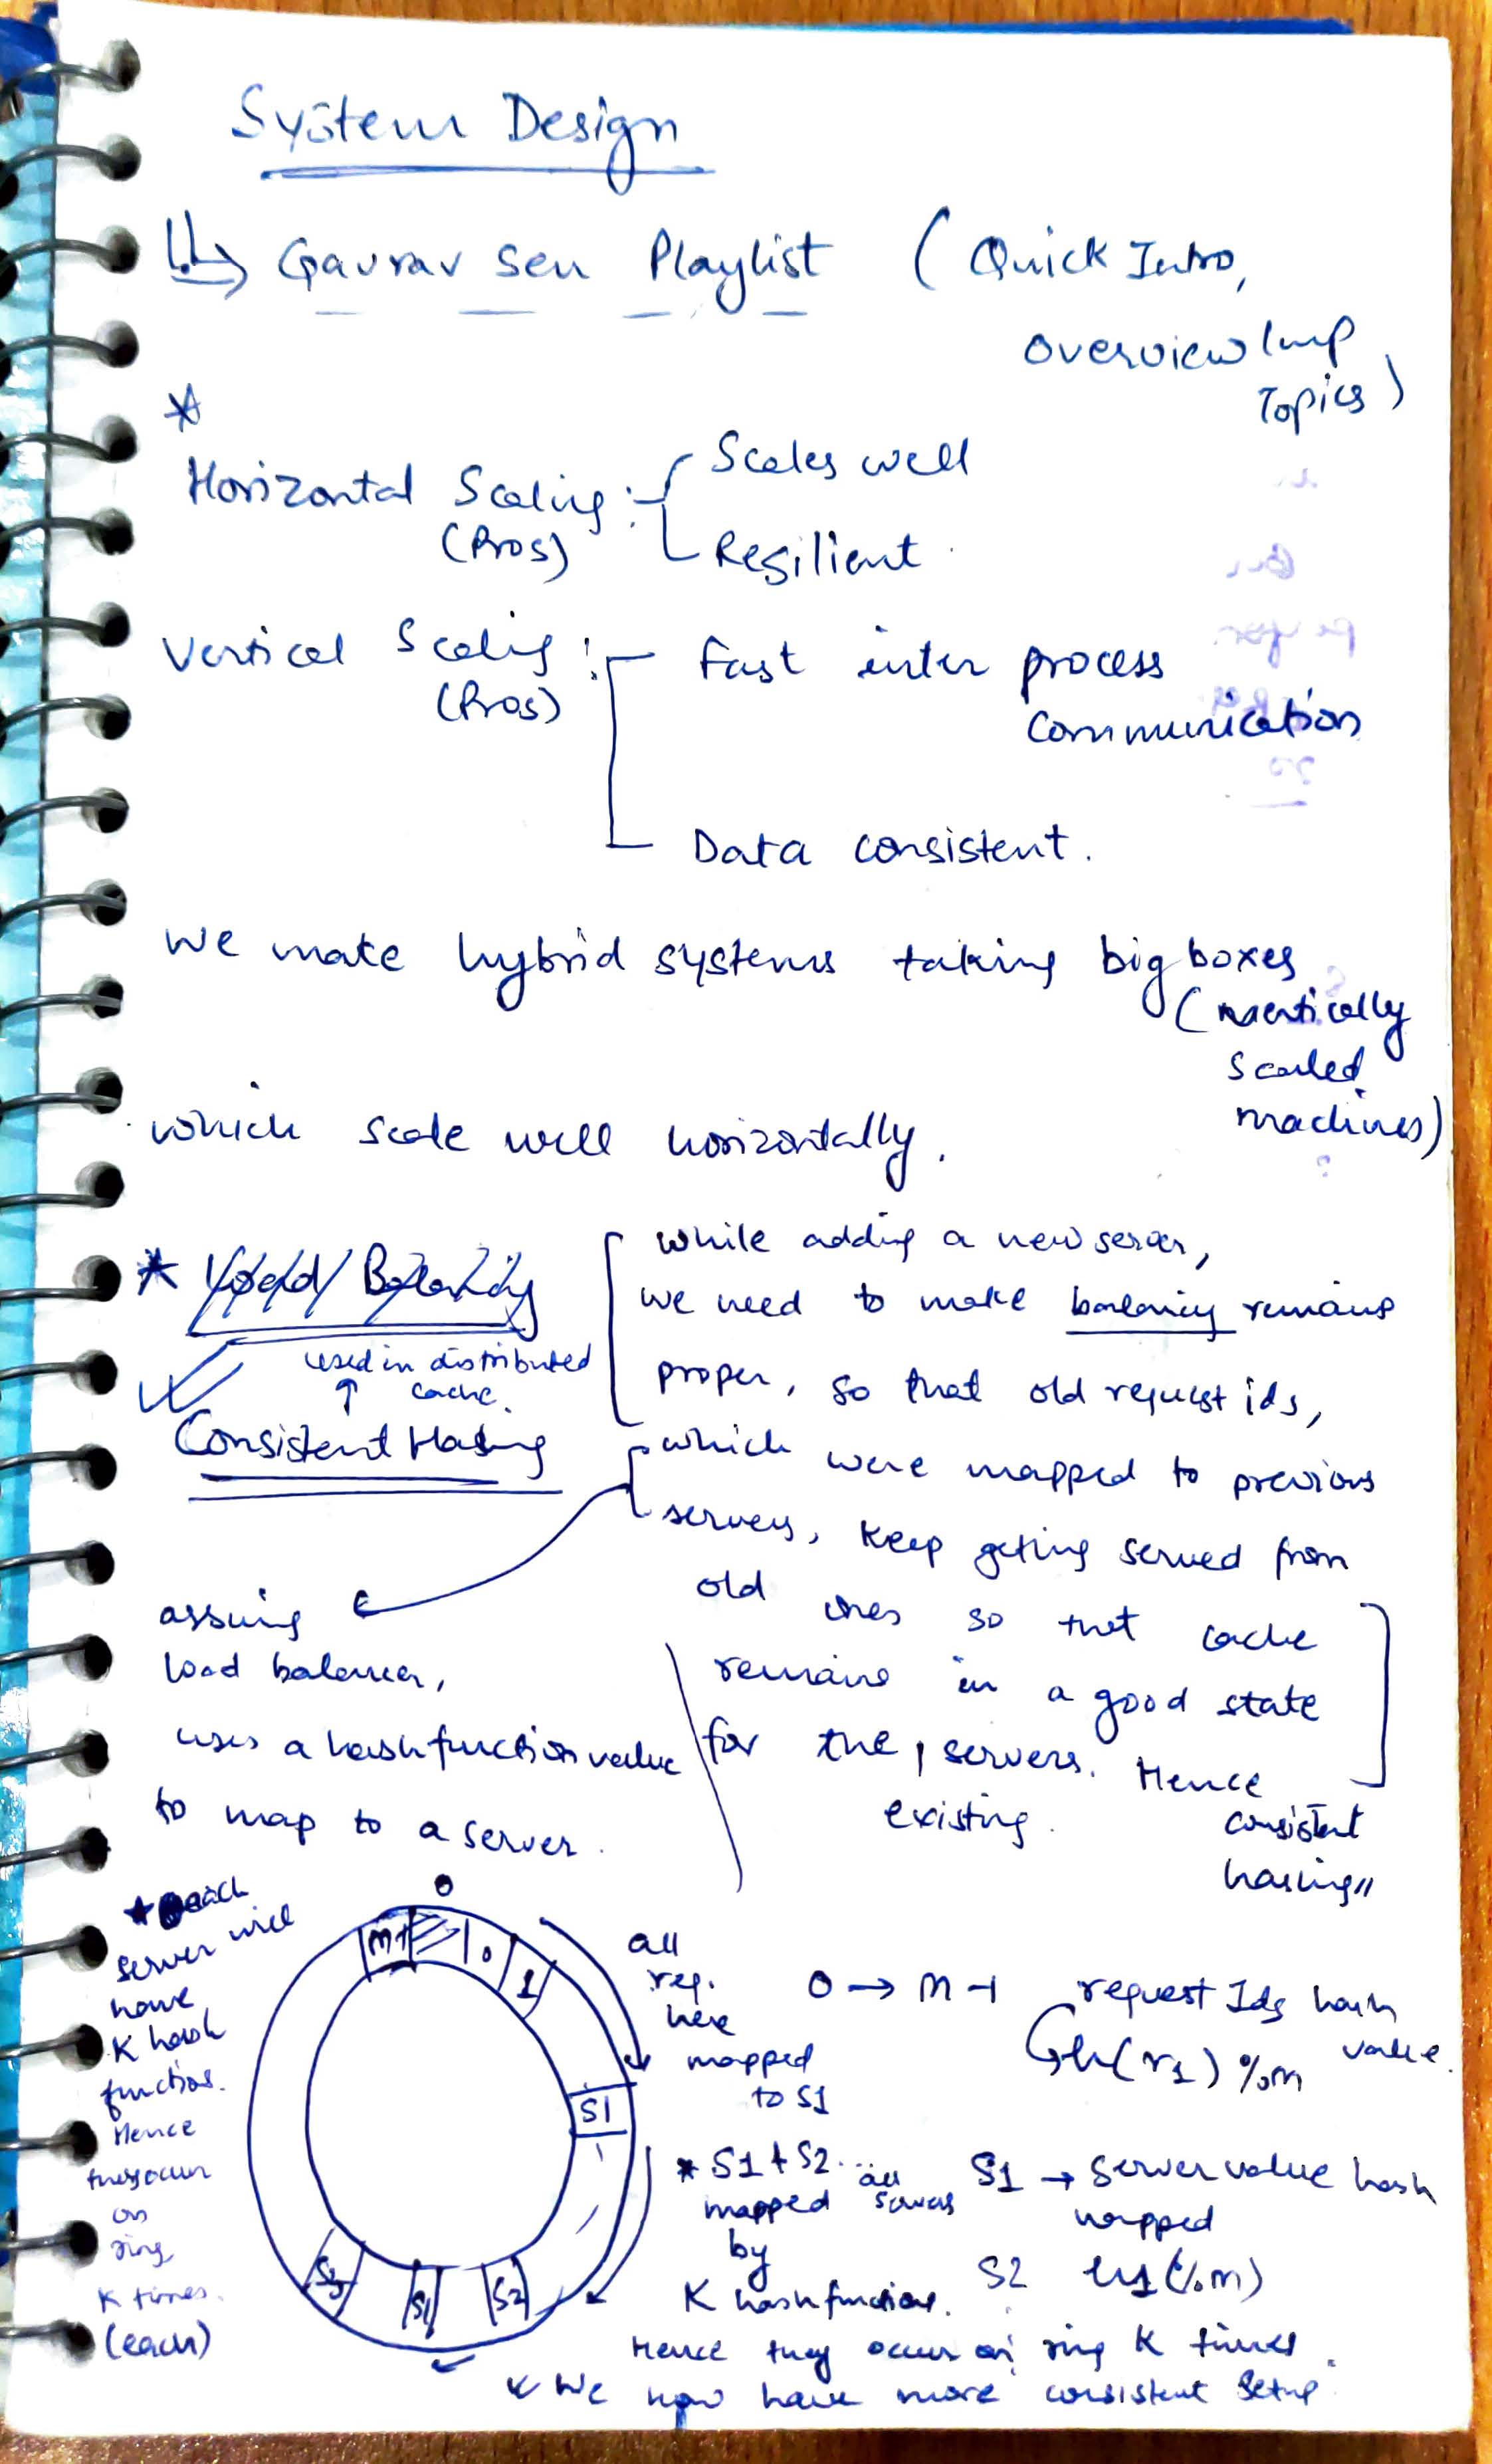 System Design
Gaurav Sen Playlist (Quick Intro,
Overview Imp
Topics)
Horizontal Scaling :
(Pros)
Scales well
Resilient
Vertical Scaling :
(Pros)
Fast inter process
communication
Data consistent.
We make hybrid systems taking big boxes
(vertically
scaled
machines)
which scale well horizontally.
* Load Balancing
used in distributed
cache.
Consistent Hashing
while adding a new server,
we need to make balancing remains
proper, so that old request ids,
which were mapped to previous
servers, keep geting served from
old ones so that cache
remains in a good state
for the existing servers. Hence
consistent
hashing"
assuming
load balancer,
uses a hash function value
to map to a server.
* each
server will
have
K hash
functions.
Hence
they occur
on
ring
K times.
(each)
0
M-1
0
1
S1
S2
S1
S3
all
req.
here
mapped
to S1
0 → M-1 request Ids hash
value.
h(r1) % m
* S1 + S2... all
servers
mapped
by
K hash functions.
S1 → Server value hash
mapped
S2 h1(% m)
Hence they occur on ring K times.
We now have more consistent setup.